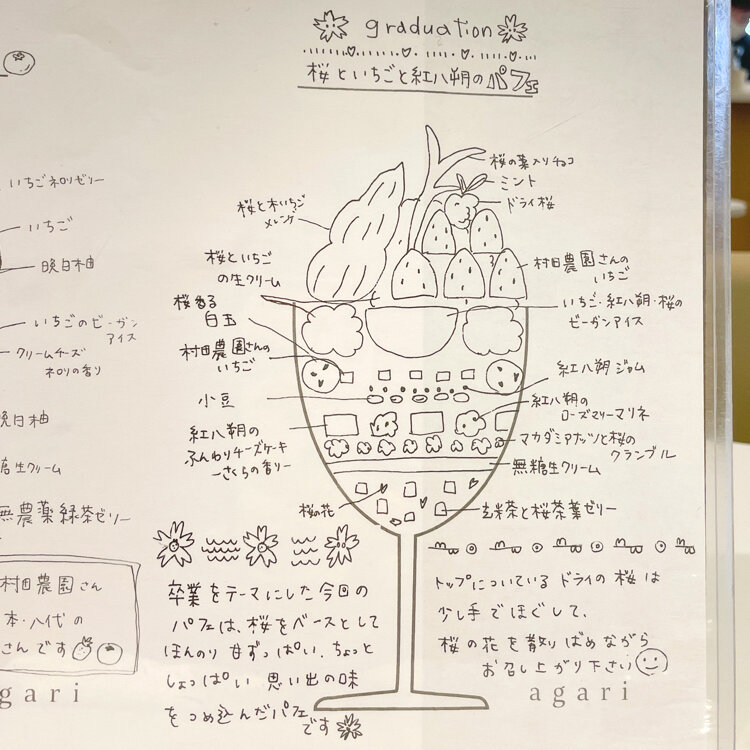 graduation
桜といちごと紅八朔のパフェ
桜の葉入りチョコ
ミント
ドライ桜
桜と木いちご
メレンゲ
桜といちご
の生クリーム
村田農園さんの
いちご
桜香る
白玉
いちご・紅八朔・桜の
ビーガンアイス
村田農園さんの
いちご
紅八朔ジャム
小豆
紅八朔の
ローズマリーマリネ
紅八朔の
ふんわりチーズケーキ
-さくらの香り-
マカダミアナッツと桜の
クランブル
無糖生クリーム
桜の花
玄米茶と桜茶葉ゼリー
卒業をテーマにした今回の
パフェは、桜をベースとして
ほんのり甘ずっぱい、ちょっと
しょっぱい 思い出の味
をつめ込んだパフェ
です
トップについているドライの桜は
少し手でほぐして、
桜の花を散りばめながら
お召し上がり下さい
agari
いちごネロリゼリー
いちご
晩白柚
いちごのビーガン
アイス
クリームチーズ
ネロリの香り
晩白柚
糖生クリーム
無農薬緑茶ゼリー
村田農園さん
本・八代の
さんです
agari